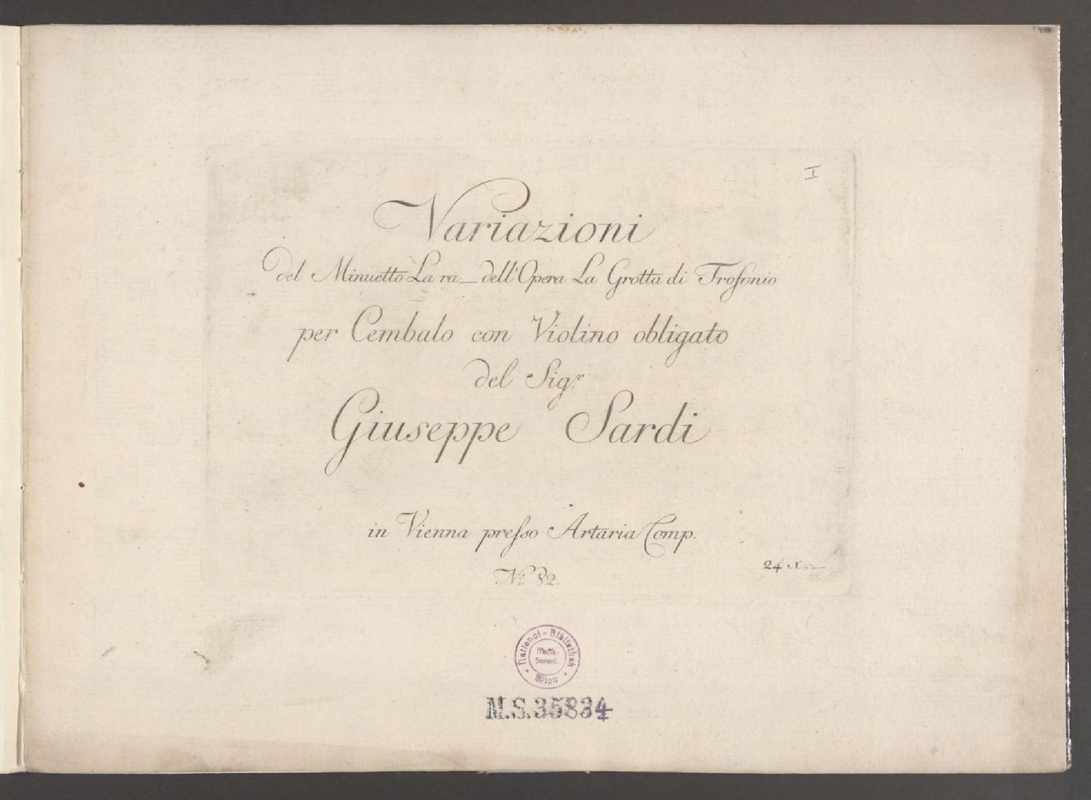 I
Variazioni
del Minuetto La ra_ dell'Opera La Grotta di Trofonio
per Cembalo con Violino obligato
del Sig.r
Giuseppe Sardi
in Vienna presso Artaria Comp.
No. 82.
24
National-Bibliothek
Musik-
Samml.
Wien
M.S.35834